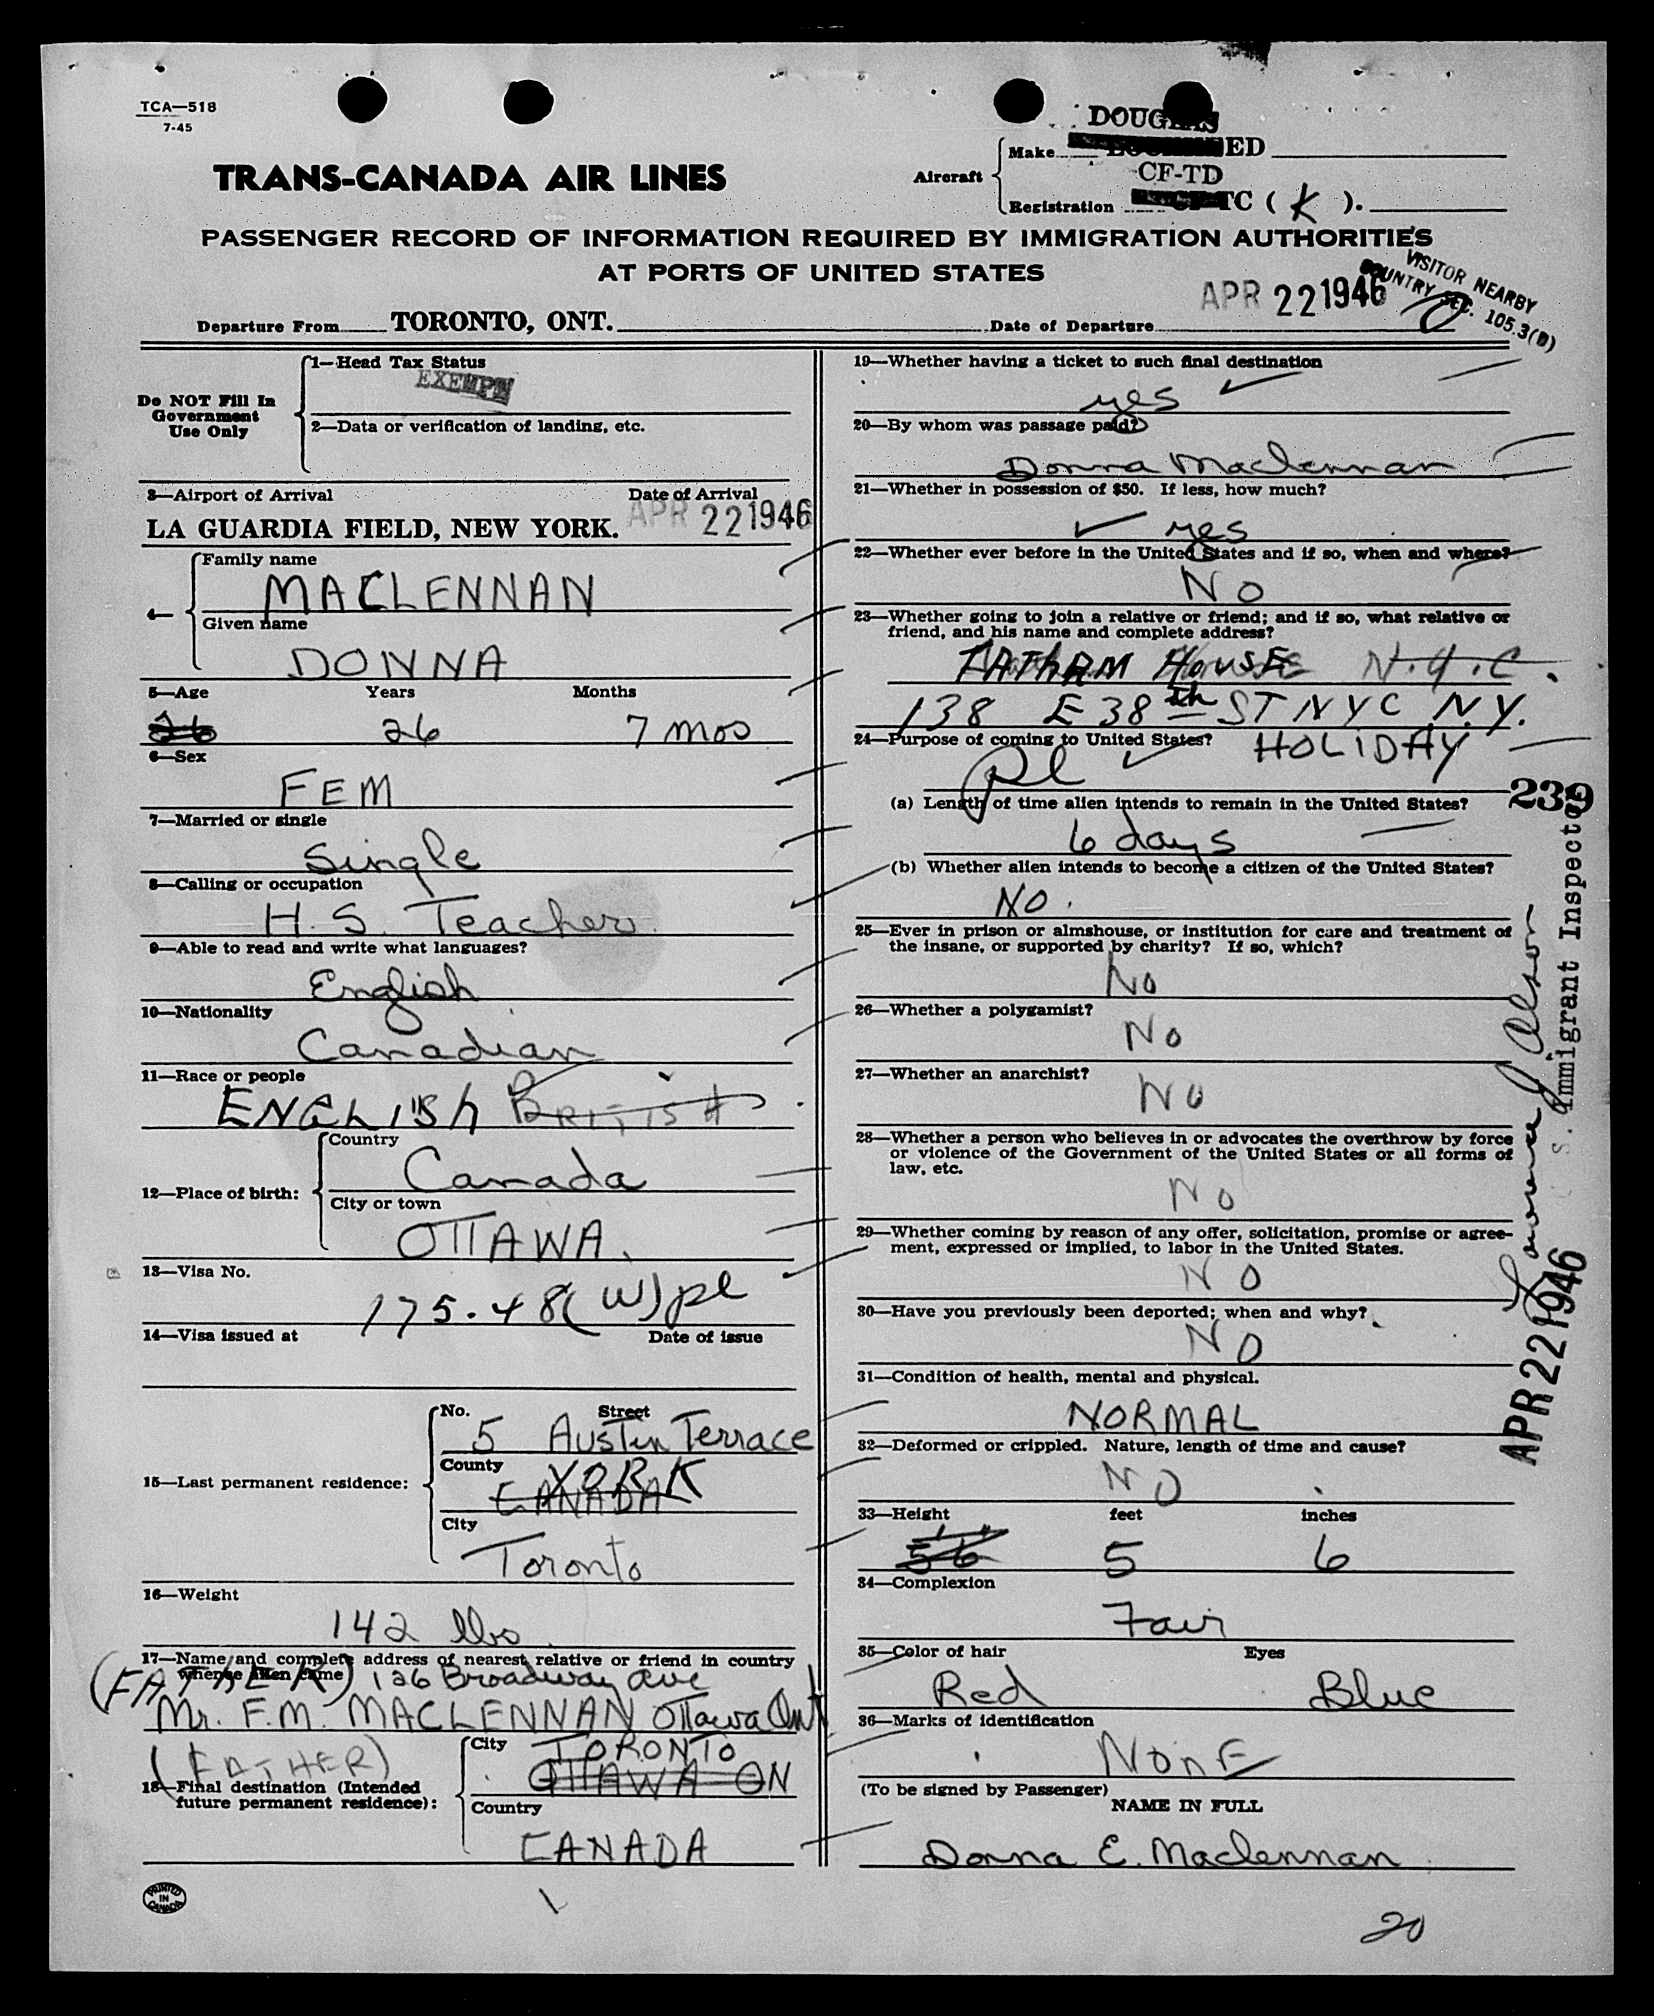 TCA—518
7-45
TRANS-CANADA AIR LINES
Aircraft
Make
DOUGLAS
ED
Registration
CF-TD
TC ( K ).
PASSENGER RECORD OF INFORMATION REQUIRED BY IMMIGRATION AUTHORITIES
AT PORTS OF UNITED STATES
VISITOR NEARBY
COUNTRY SEC. 105.3(B)
Departure From TORONTO, ONT. Date of Departure APR 22 1946
Do NOT Fill In
Government
Use Only
1—Head Tax Status
EXEMPT
2—Data or verification of landing, etc.
3—Airport of Arrival Date of Arrival
LA GUARDIA FIELD, NEW YORK. APR 22 1946
4—
Family name
MACLENNAN
Given name
DONNA
5—Age Years Months
26 26 7 mos
6—Sex
FEM
7—Married or single
Single
8—Calling or occupation
H. S. Teacher
9—Able to read and write what languages?
English
10—Nationality
Canadian
11—Race or people
ENGLISH BRITISH
12—Place of birth:
Country
Canada
City or town
OTTAWA.
13—Visa No.
175.48(W) pl
14—Visa issued at Date of issue
15—Last permanent residence:
No. Street
5 Austin Terrace
County
YORK
CANADA
City
Toronto
16—Weight
142 lbs
17—Name and complete address of nearest relative or friend in country
whence alien came
(FATHER) 126 Broadway ave
Mr. F.M. MACLENNAN Ottawa Ont
(FATHER)
18—Final destination (Intended
future permanent residence):
City
TORONTO
OTTAWA ON
Country
CANADA
PRINTED
IN
CANADA
19—Whether having a ticket to such final destination
yes
20—By whom was passage paid?
Donna Maclennan
21—Whether in possession of $50. If less, how much?
yes
22—Whether ever before in the United States and if so, when and where?
No
23—Whether going to join a relative or friend; and if so, what relative or
friend, and his name and complete address?
TATHAM HOUSE N.Y.C.
138 E 38th ST NYC N.Y.
24—Purpose of coming to United States? HOLIDAY
pl
(a) Length of time alien intends to remain in the United States?
6 days
(b) Whether alien intends to become a citizen of the United States?
NO.
25—Ever in prison or almshouse, or institution for care and treatment of
the insane, or supported by charity? If so, which?
No
26—Whether a polygamist?
No
27—Whether an anarchist?
No
28—Whether a person who believes in or advocates the overthrow by force
or violence of the Government of the United States or all forms of
law, etc.
No
29—Whether coming by reason of any offer, solicitation, promise or agree-
ment, expressed or implied, to labor in the United States.
NO
30—Have you previously been deported; when and why?
NO
31—Condition of health, mental and physical.
NORMAL
32—Deformed or crippled. Nature, length of time and cause?
NO
33—Height feet inches
5' 6" 5 6
34—Complexion
Fair
35—Color of hair Eyes
Red Blue
36—Marks of identification
NONE
(To be signed by Passenger)
NAME IN FULL
Donna E. Maclennan
20
239
S. Immigrant Inspector
APR 22 1946